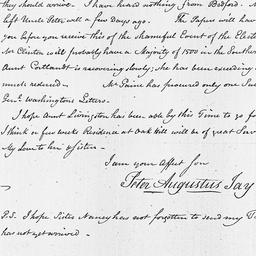 they should arrive - I have heard nothing from Bedford.
left Uncle Peter well a few days ago. The Papers will have
you before you receive this of the shameful Count of the Elect
Mr Clinton wd probably have a Majority of 1500 in the Southern
Aunt Cortlandt is recovering slowly; She has been exceeding
much reduced. - Mr Paine has procured only one
Genl. Washingtons Letters.
I hope Aunt Livingston has been able by this Time to go
I think a few weeks Residence at Oak Hill will be of great
My Love to her & Sister -
I am your affect Son
Peter Augustus Jay
P.S. I hope Sister Nancy has not forgotten to send my
has not yet arrived -